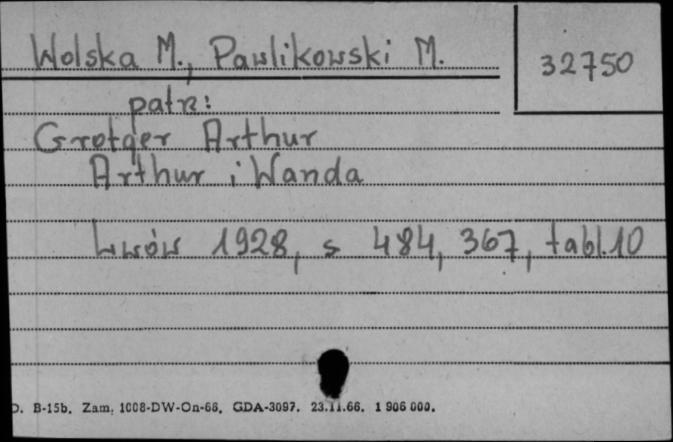 Wolska M., Pawlikowski M.
32750
patrz:
Grotger Arthur
Arthur i Wanda
Lwów 1928, s 484, 367, tabl. 10
D. B-15b. Zam. 1008-DW-On-66. GDA-3097. 23.11.66. 1 906 000.